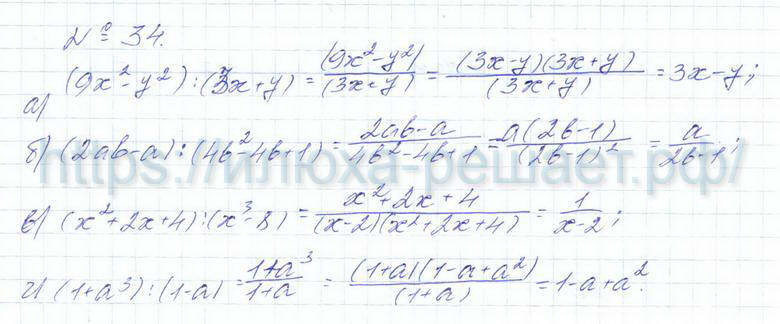 № 34.
а) (9x²-y²):(3x+y) = (9x²-y²)/(3x+y) = (3x-y)(3x+y)/(3x+y) = 3x-y;
б) (2ab-a):(4b²-4b+1) = 2ab-a/4b²-4b+1 = a(2b-1)/(2b-1)² = a/2b-1;
https://илюха-решает.рф/
в) (x²+2x+4):(x³-8) = x²+2x+4/(x-2)(x²+2x+4) = 1/x-2;
г) (1+a³):(1-a) = 1+a³/1+a = (1+a)(1-a+a²)/(1+a) = 1-a+a².